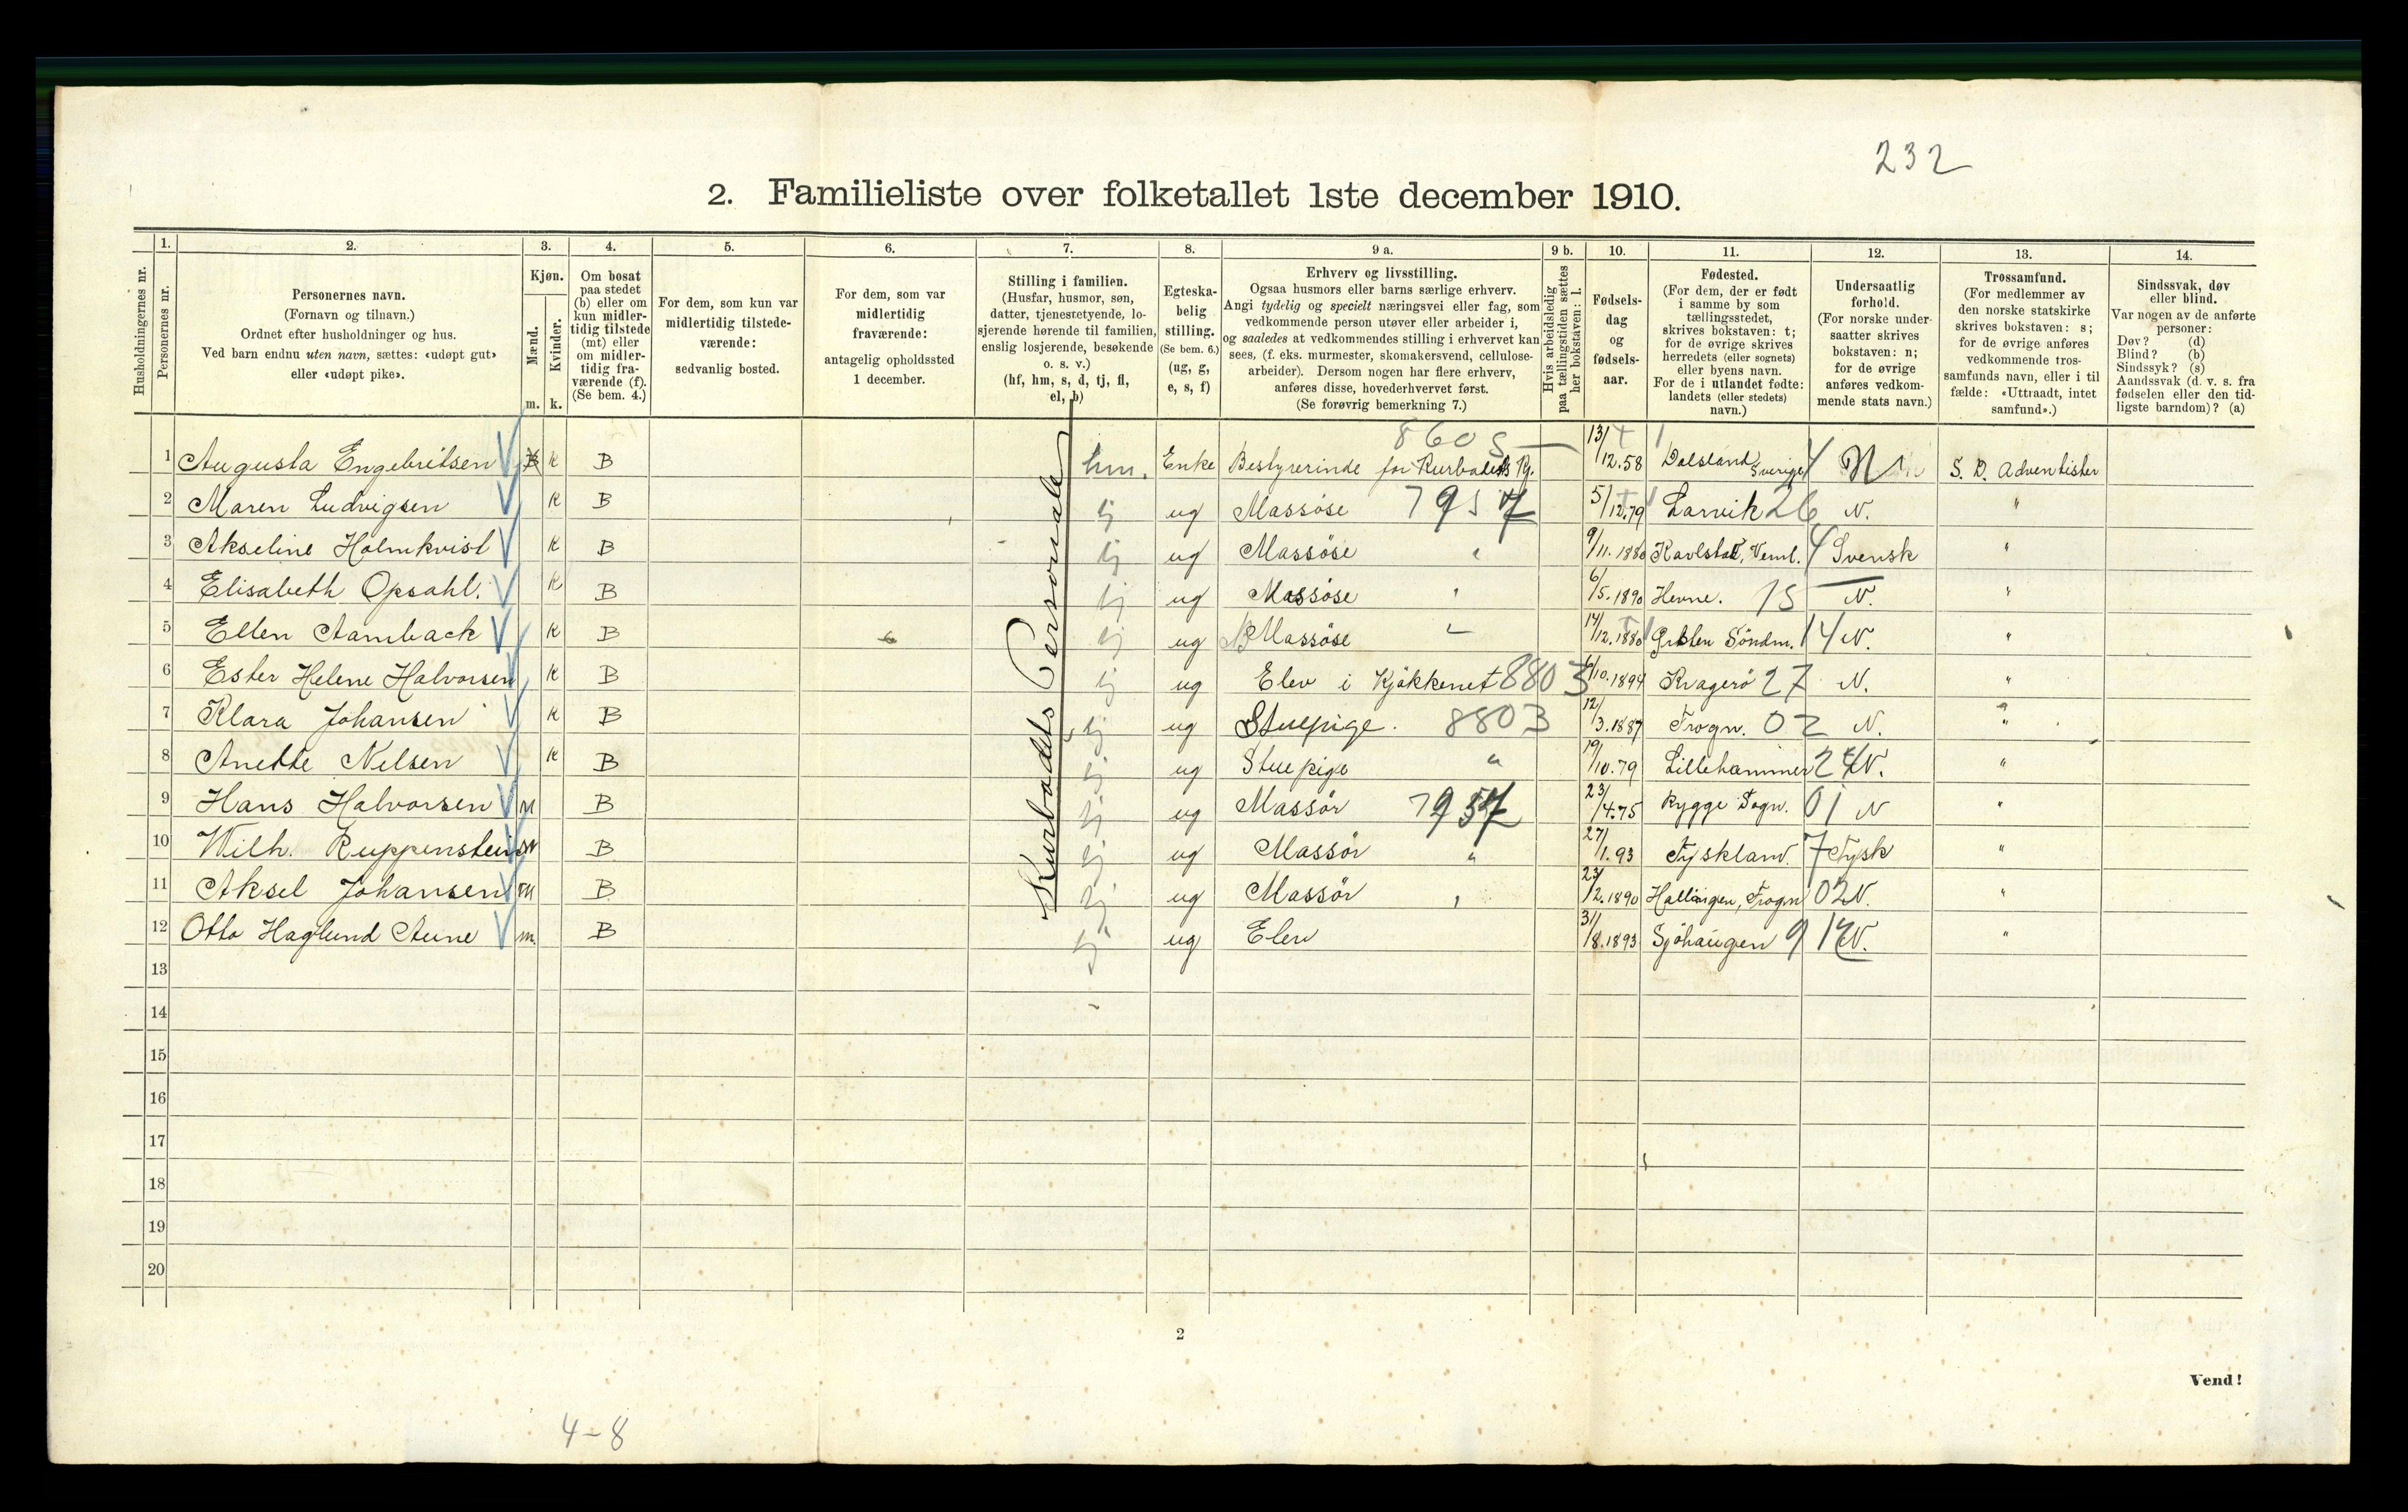 232
2. Familieliste over folketallet 1ste december 1910.
Husholdningernes nr.
1.
Personernes nr.
2.
Personernes navn.
(Fornavn og tilnavn.)
Ordnet efter husholdninger og hus.
Ved barn endnu uten navn, sættes: «udøpt gut»
eller «udøpt pike».
3.
Kjøn.
Mænd.
Kvinder.
m. k.
4.
Om bosat
paa stedet
(b) eller om
kun midler-
tidig tilstede
(mt) eller
om midler-
tidig fra-
værende (f).
(Se bem. 4.)
5.
For dem, som kun var
midlertidig tilstede-
værende:
sedvanlig bosted.
6.
For dem, som var
midlertidig
fraværende:
antagelig opholdssted
1 december.
7.
Stilling i familien.
(Husfar, husmor, søn,
datter, tjenestetyende, lo-
sjerende hørende til familien,
enslig losjerende, besøkende
o. s. v.)
(hf, hm, s, d, tj, fl,
el, b)
8.
Egteska-
belig
stilling.
(Se bem. 6.)
(ug, g,
e, s, f)
9 a.
Erhverv og livsstilling.
Ogsaa husmors eller barns særlige erhverv.
Angi tydelig og specielt næringsvei eller fag, som
vedkommende person utøver eller arbeider i,
og saaledes at vedkommendes stilling i erhvervet kan
sees, (f. eks. murmester, skomakersvend, cellulose-
arbeider). Dersom nogen har flere erhverv,
anføres disse, hovederhvervet først.
(Se forøvrig bemerkning 7.)
9 b.
Hvis arbeidsledig
paa tællingstiden sættes
her bokstaven: l.
10.
Fødsels-
dag
og
fødsels-
aar.
11.
Fødested.
(For dem, der er født
i samme by som
tællingsstedet,
skrives bokstaven: t;
for de øvrige skrives
herredets (eller sognets)
eller byens navn.
For de i utlandet fødte:
landets (eller stedets)
navn.)
12.
Undersaatlig
forhold.
(For norske under-
saatter skrives
bokstaven: n;
for de øvrige
anføres vedkom-
mende stats navn.)
13.
Trossamfund.
(For medlemmer av
den norske statskirke
skrives bokstaven: s;
for de øvrige anføres
vedkommende tros-
samfunds navn, eller i til
fælde: «Uttraadt, intet
samfund».)
14.
Sindssvak, døv
eller blind.
Var nogen av de anførte
personer:
Døv? (d)
Blind? (b)
Sindssyk? (s)
Aandssvak (d. v. s. fra
fødselen eller den tid-
ligste barndom)? (a)
Kurbadets Personale
1 Augusta Engebritsen K B hm. Enke Bestyrerinde for Kurbadets 8605 13/12.58 Dalsland Sverige 4 N S. D. Adventister
2 Maren Ludvigsen K B tj ug Massøse 7957 5/12.79 Larvik 26 N. "
3 Akseline Holmkvist K B tj ug Massøse " 9/11.1880 Karlstad, Verml. 4 Svensk "
4 Elisabeth Opsahl. K B tj ug Massøse " 6/5.1890 Hevne. 15 N. "
5 Ellen Aamback K B tj ug Massøse " 14/12.1880 Söndm. 14 N. "
6 Ester Helene Halvorsen K B tj ug Elev i Kjøkkenet 8803 6/10.1894 Kragerö 27 N. "
7 Klara Johansen K B tj ug Stuepige. 8803 12/3.1887 Frogn. 02 N. "
8 Anette Nelsen K B tj ug Stuepige " 19/10.79 Lillehammer 24 N. "
9 Hans Halvorsen M B tj ug Massør 7957 23/4.75 Rygge Sogn. 01 N "
10 Wilh. Ruppenstein M B tj ug Massør " 27/1.93 Tyskland. 7 Tysk "
11 Aksel Johansen m B tj ug Massør " 23/2.1890 Hallangen, Frogn 02 N. "
12 Otto Haglund Aune m. B tj ug Elev 31/8.1893 Sjøhaugen 9 N. "
13
14
15
16
17
18
19
20
2
Vend!
4-8